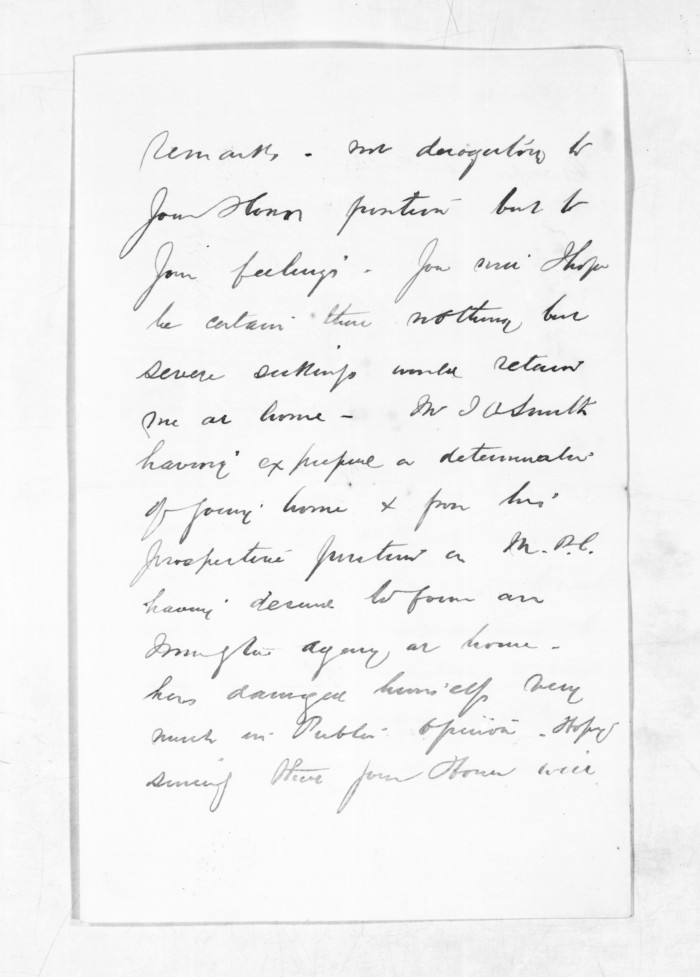 remarks - not derogatory to
your Honor position but to
your feelings - you will I hope
be certain that nothing but
severe sickness would retain
me at home - Mr J A Smith
having expressed a determination
of going home & from his
prospective position as M.P.C.
having desired to form an
Immigration agency at home -
has damaged himself very
much in Public opinion - Hoping
sincerely that your Honor will